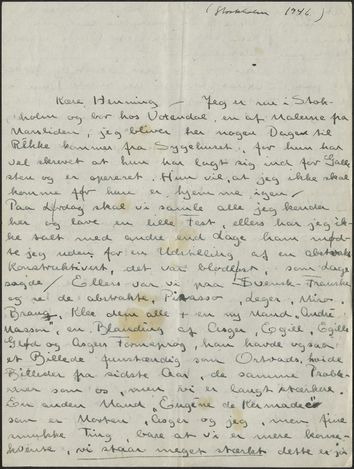 (Stockholm 1946)
Kære Henning – Jeg er nu i Stok-
holm og bor hos , en af Malerne fra
, jeg bliver her nogen Dage til
Rikke kommer fra Sygehuset, for hun har
vel skrevet at hun har lagt sig ind for Galle
sten og er opereret. Hun vil, at jeg ikke skal
komme før hun er hjemme igen
Paa Lørdag skal vi samle alle jeg kender
her og lave en lille Fest, ellers har jeg ik-
ke talt med andre end Dage ham mød-
te jeg uden for en Udstilling af en abstrakt
Konstruktivist, det var blodløst, som Dage
sagde / Ellers var vi paa Svensk-Franska
og se de abstrakte, Picasso, Leger, Miro,
Braque, Klee dem alle + en ny Mand, André
Masson", en Blanding af Asger, Egill, Egills
Glød og Asgers Formsprog, han havde ogsaa
et Billede fuldstændig som Ortvads hvide
Billeder fra sidste Aar, de samme Proble-
mer som os, men vi er langt stærkere.
En anden Mand "Eugène de Kermadec"
som er Morten, Asger og jeg, men fine
smukke Ting, bare at vi er mere konse-
kvente, vi staar meget stærkt dette er jo